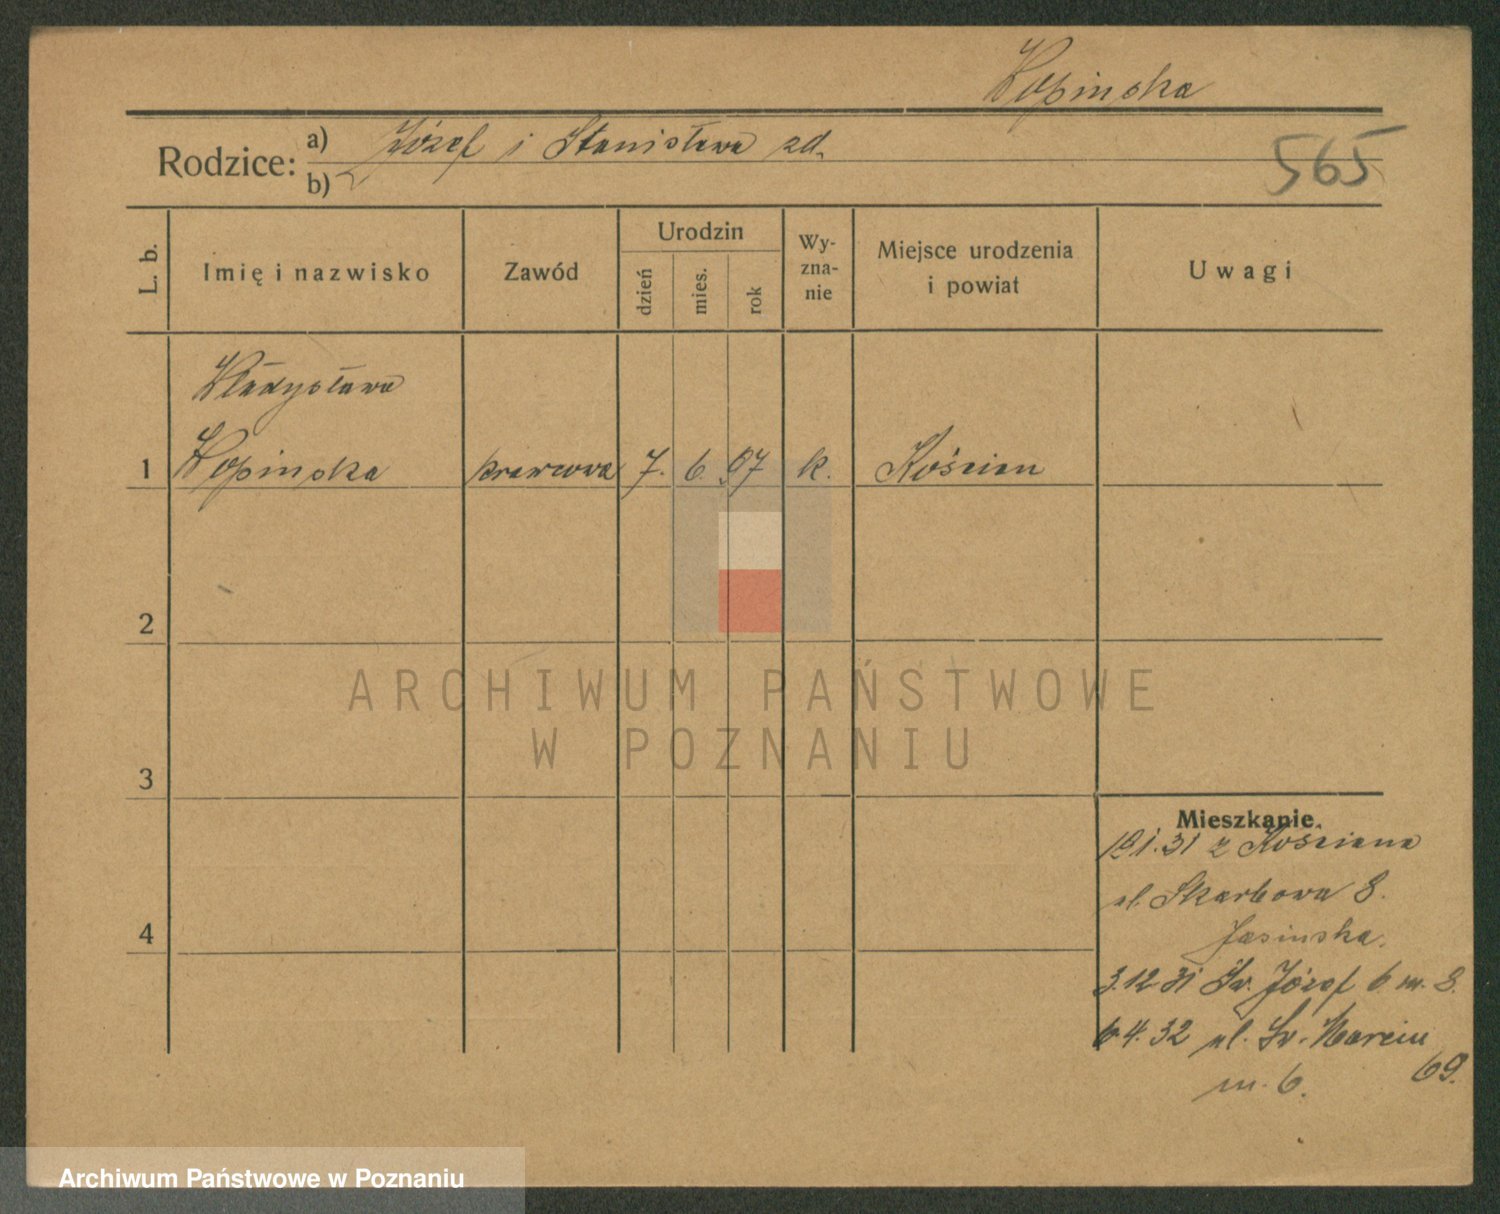 Łopinska
Rodzice: a) Józef i Stanisława zd.
b)
565
L. b.
Imię i nazwisko
Zawód
Urodzin
dzień
mies.
rok
Wy-
zna-
nie
Miejsce urodzenia
i powiat
Uwagi
Władysława
1 Łopinska krawcowa 7. 6. 07 k. Kościan
2
3
4
Mieszkanie.
z Kościana
ul. Skarbowa 8.
Jasinska.
3.12 31 Św. Józef 6. m. 8.
6.4.32 ul. Św. Marcin
69.
m. 6.
ARCHIWUM PAŃSTWOWE
W POZNANIU
Archiwum Państwowe w Poznaniu